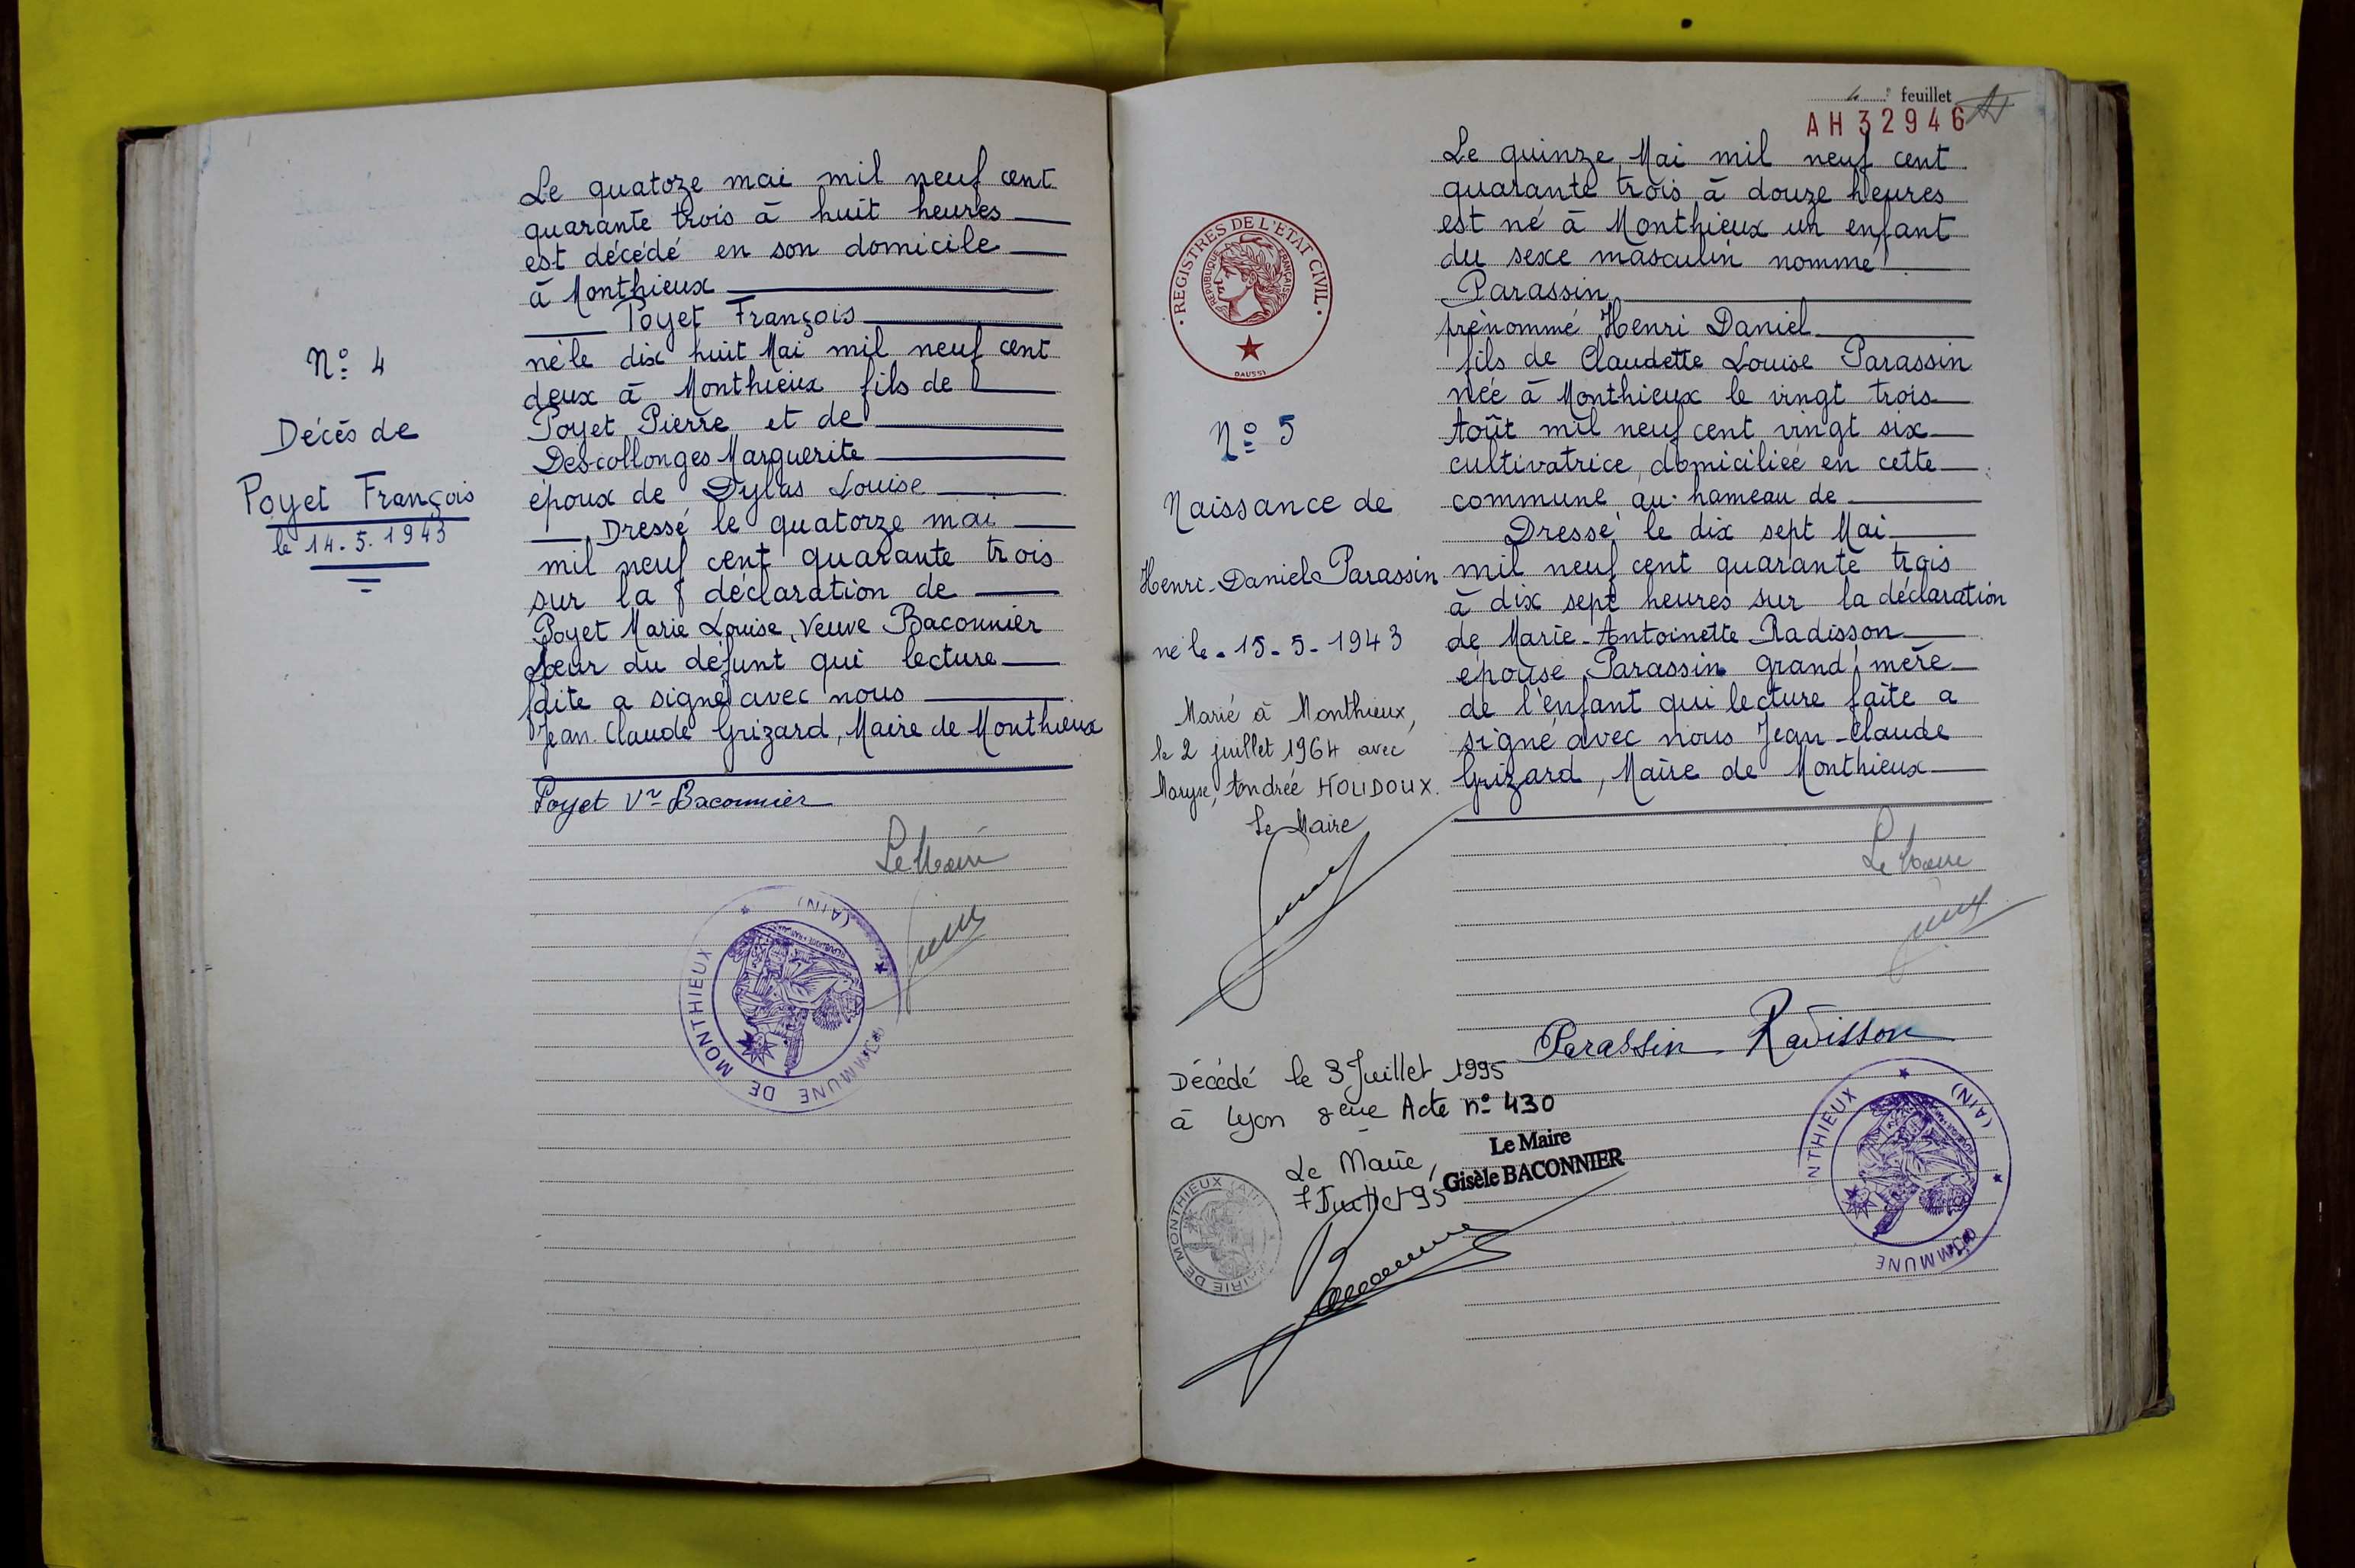 N° 4
Décès de
Poyet François
le 14.5.1943
Le quatoze mai mil neuf cent
quarante trois à huit heures
est décédé en son domicile
à Monthieux
Poyet François
né le dix huit Mai mil neuf cent
deux à Monthieux fils de
Poyet Pierre et de
Descollonges Marguerite
époux de Dylas Louise
Dressé le quatorze mai
mil neuf cent quarante trois
sur la déclaration de
Poyet Marie Louise, Veuve Baconnier
soeur du défunt qui lecture
faite a signé avec nous
Jean Claude Grizard, Maire de Monthieux
Poyet Vve Baconnier
Le Maire
COMMUNE DE MONTHIEUX (AIN)
4e feuillet
AH 32946
REGISTRES DE L'ETAT CIVIL
REPUBLIQUE FRANÇAISE
DAUSSI
N° 5
Naissance de
Henri-Daniel Parassin
né le 15-5-1943
Marié à Monthieux,
le 2 juillet 1964 avec
Maryse, Andrée HOUDOUX.
Le Maire
Décédé le 3 Juillet 1995
à Lyon 8ème Acte n° 430
Le Maire,
7 Juillet 95
Le Maire
Gisèle BACONNIER
MAIRIE DE MONTHIEUX (AIN)
Le quinze Mai mil neuf cent
quarante trois à douze heures
est né à Monthieux un enfant
du sexe masculin nommé
Parassin
prénommé Henri Daniel
fils de Claudette Louise Parassin
née à Monthieux le vingt trois
Août mil neuf cent vingt six
cultivatrice domiciliée en cette
commune au hameau de
Dressé le dix sept Mai
mil neuf cent quarante trois
à dix sept heures sur la déclaration
de Marie-Antoinette Radisson
épouse Parassin grand'mère
de l'enfant qui lecture faite a
signé avec nous Jean-Claude
Grizard, Maire de Monthieux
Le Maire
Parassin Radisson
COMMUNE
NTHIEUX (AIN)